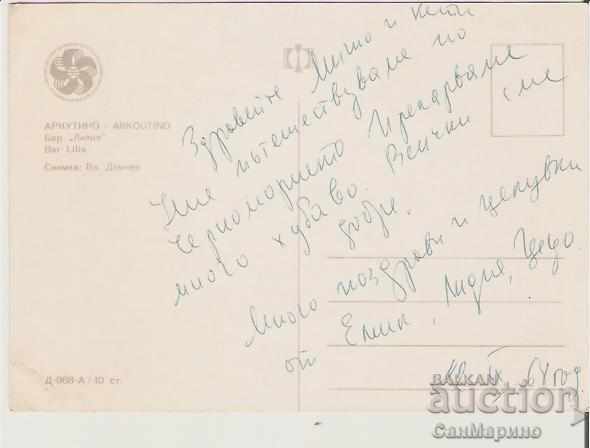 АРКУТИНО - ARKOUTINO
Бар „Лилия"
Bar Lilia
Снимка: Вл. Димчев
Здравейте Мишо и Кети
Ние пътешествуваме по
Черноморието Прекарваме
много хубаво. Всички сме
добре.
Много поздрави и целувки
от Емил, Лидия,
64 год.
Д-968-А / 10 ст.
BALKAN
auction
СанМарино